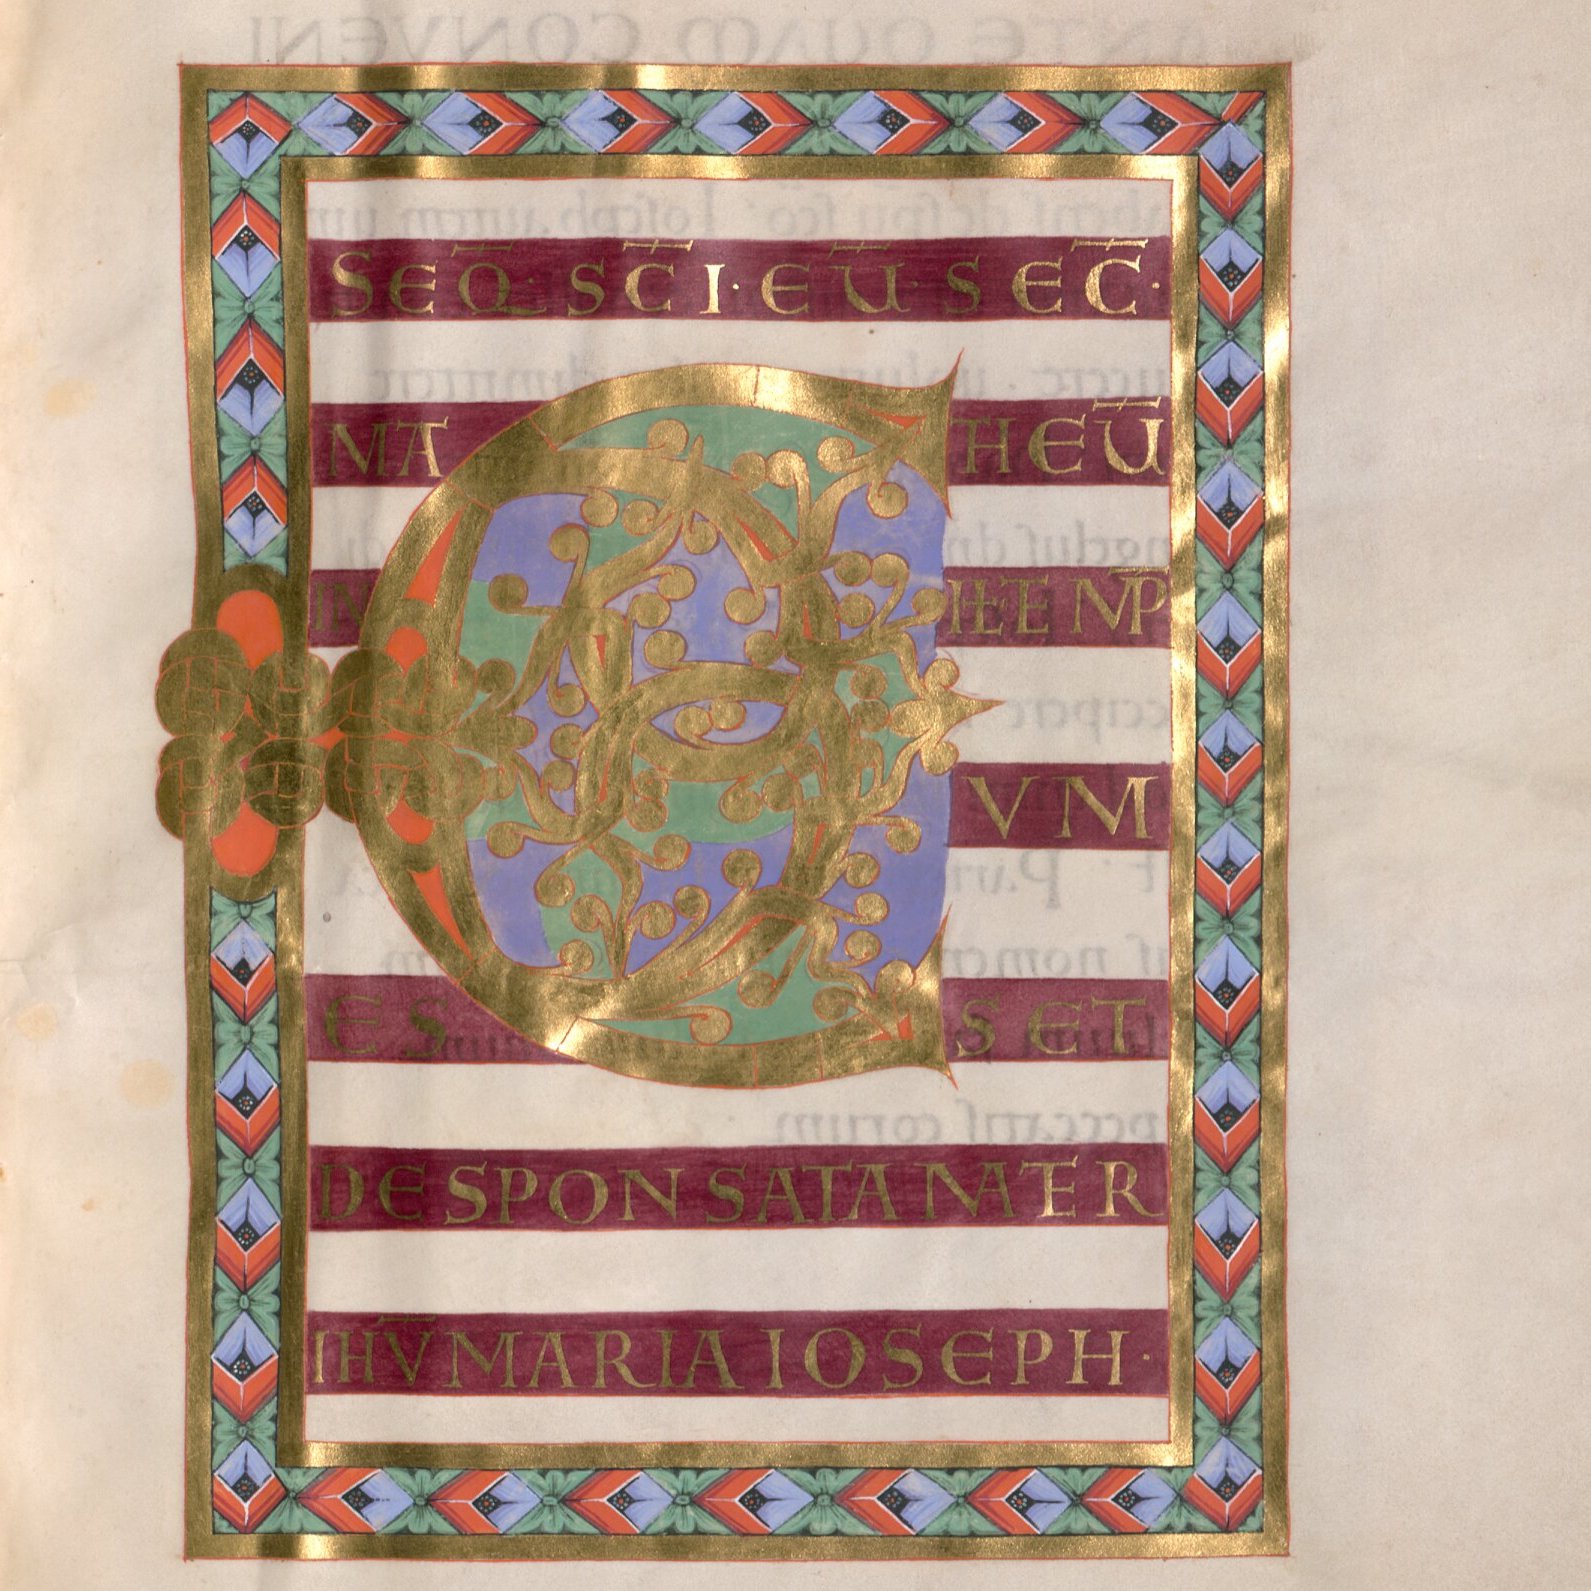 SEQ̄· SC̄I· EŪ· SEC̄·
MATHEŪ
IN IŁŁ TEMP̄
CVM
ESSET
DESPONSATA MATER
IHV̄ MARIA IOSEPH·